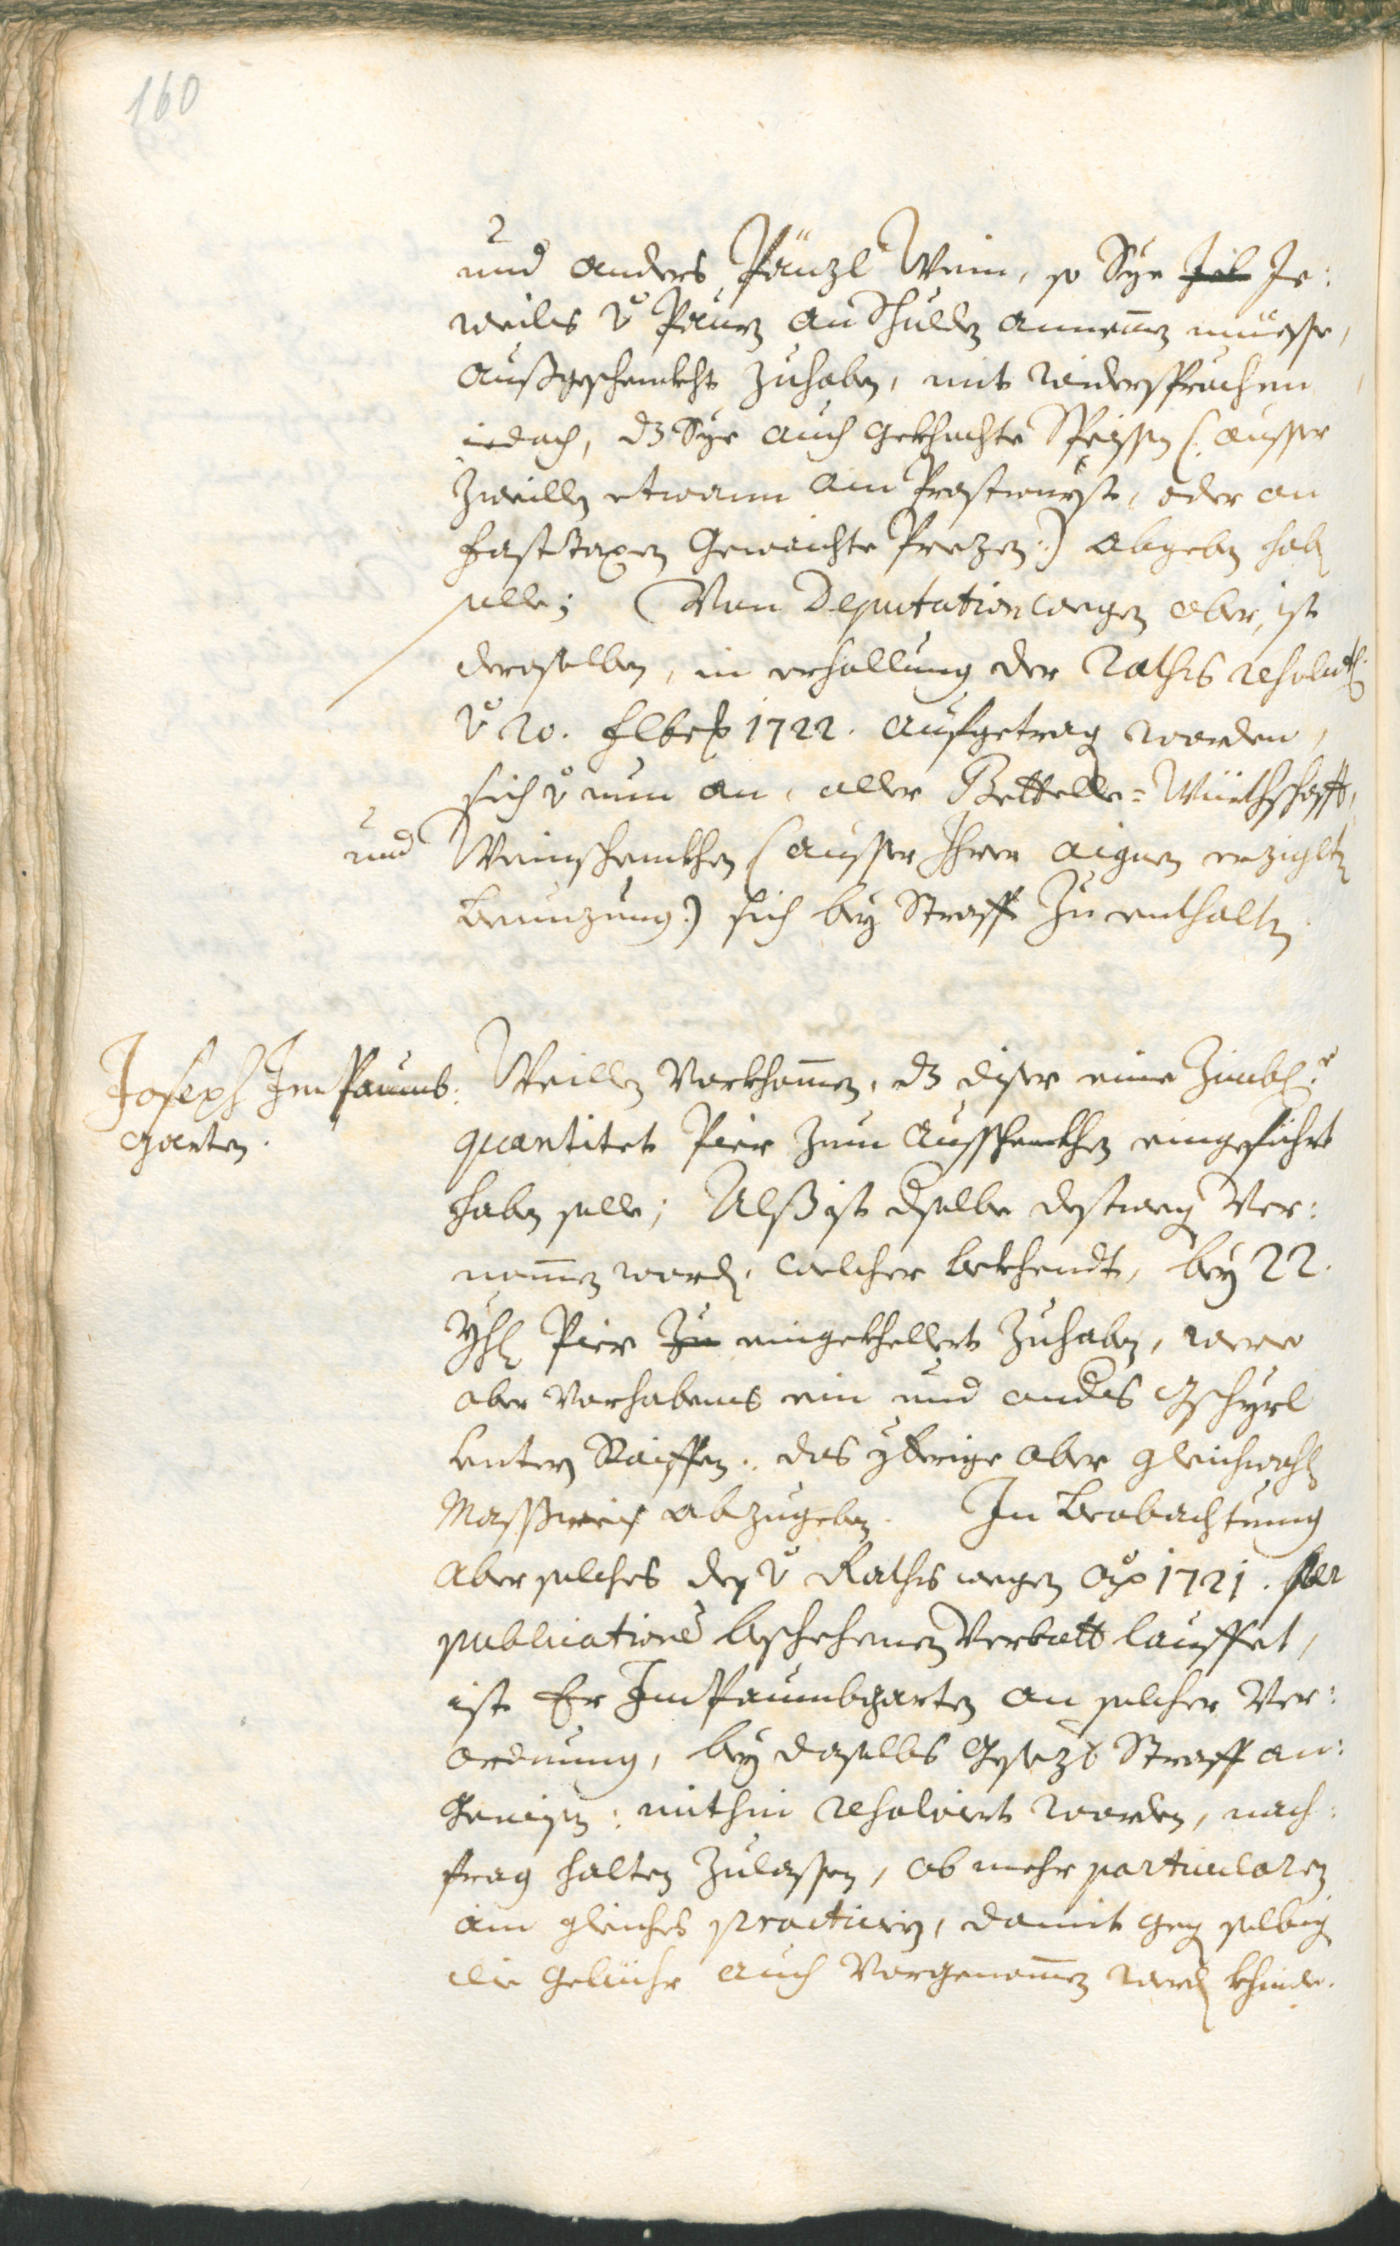 160
und anders Pänzl Wein, so Sye Jel Je:
weils v Paurn an Schulden annemen miesse,
außgeschenckht zuhaben, mit widersprechen
iedoch, dz Sye auch gekhochte Speissen (: ausser
zweillen etwann ain Prastwurst, oder an
fasttagen geweichte Prezen :) abgeben hab
solle; Von Deputation wegen aber, ist
derselben, in erhollung der Raths resolut:
v 20. 1722. aufgetrag worden,
sich v nun an, aller Bettelle= Würthschafft,
und Weinschenckhen (ausser Ihrer aignen erziglten
Bauung :) sich bey Straff zu enthalten.
Joseph Im Paumb:
garten.
Weillen Vorkhommen, dz diser eine Zimbl:e
quantitet Pier zum Ausschenckhen eingeführt
haben solle; Alß ist dselbe destweg Ver:
nommen word, welcher bekhendt, bey 22.
Yhrn Pier Zu eingekhellert zuhaben, were
aber Vorhabens ein und anders Gschyrl
unter Raiffen, das ybrige aber gleichwohl
Massweis abzugeben. In Beobachtung
aber solches dem v Raths wegen Ao 1721. per
publicationē beschehenen Verbott lauffet,
ist Er Im Paumbgarten an solcher Ver:
ordnung, bey daselbs Gesezt Straff an:
gewisen: mithin resolviert worden, nach:
frag halten zulassen, ob mehr particularn
ain gleiches practiciern, damit geg selbig
die Gebühr auch Vorgenommen werd khinde.